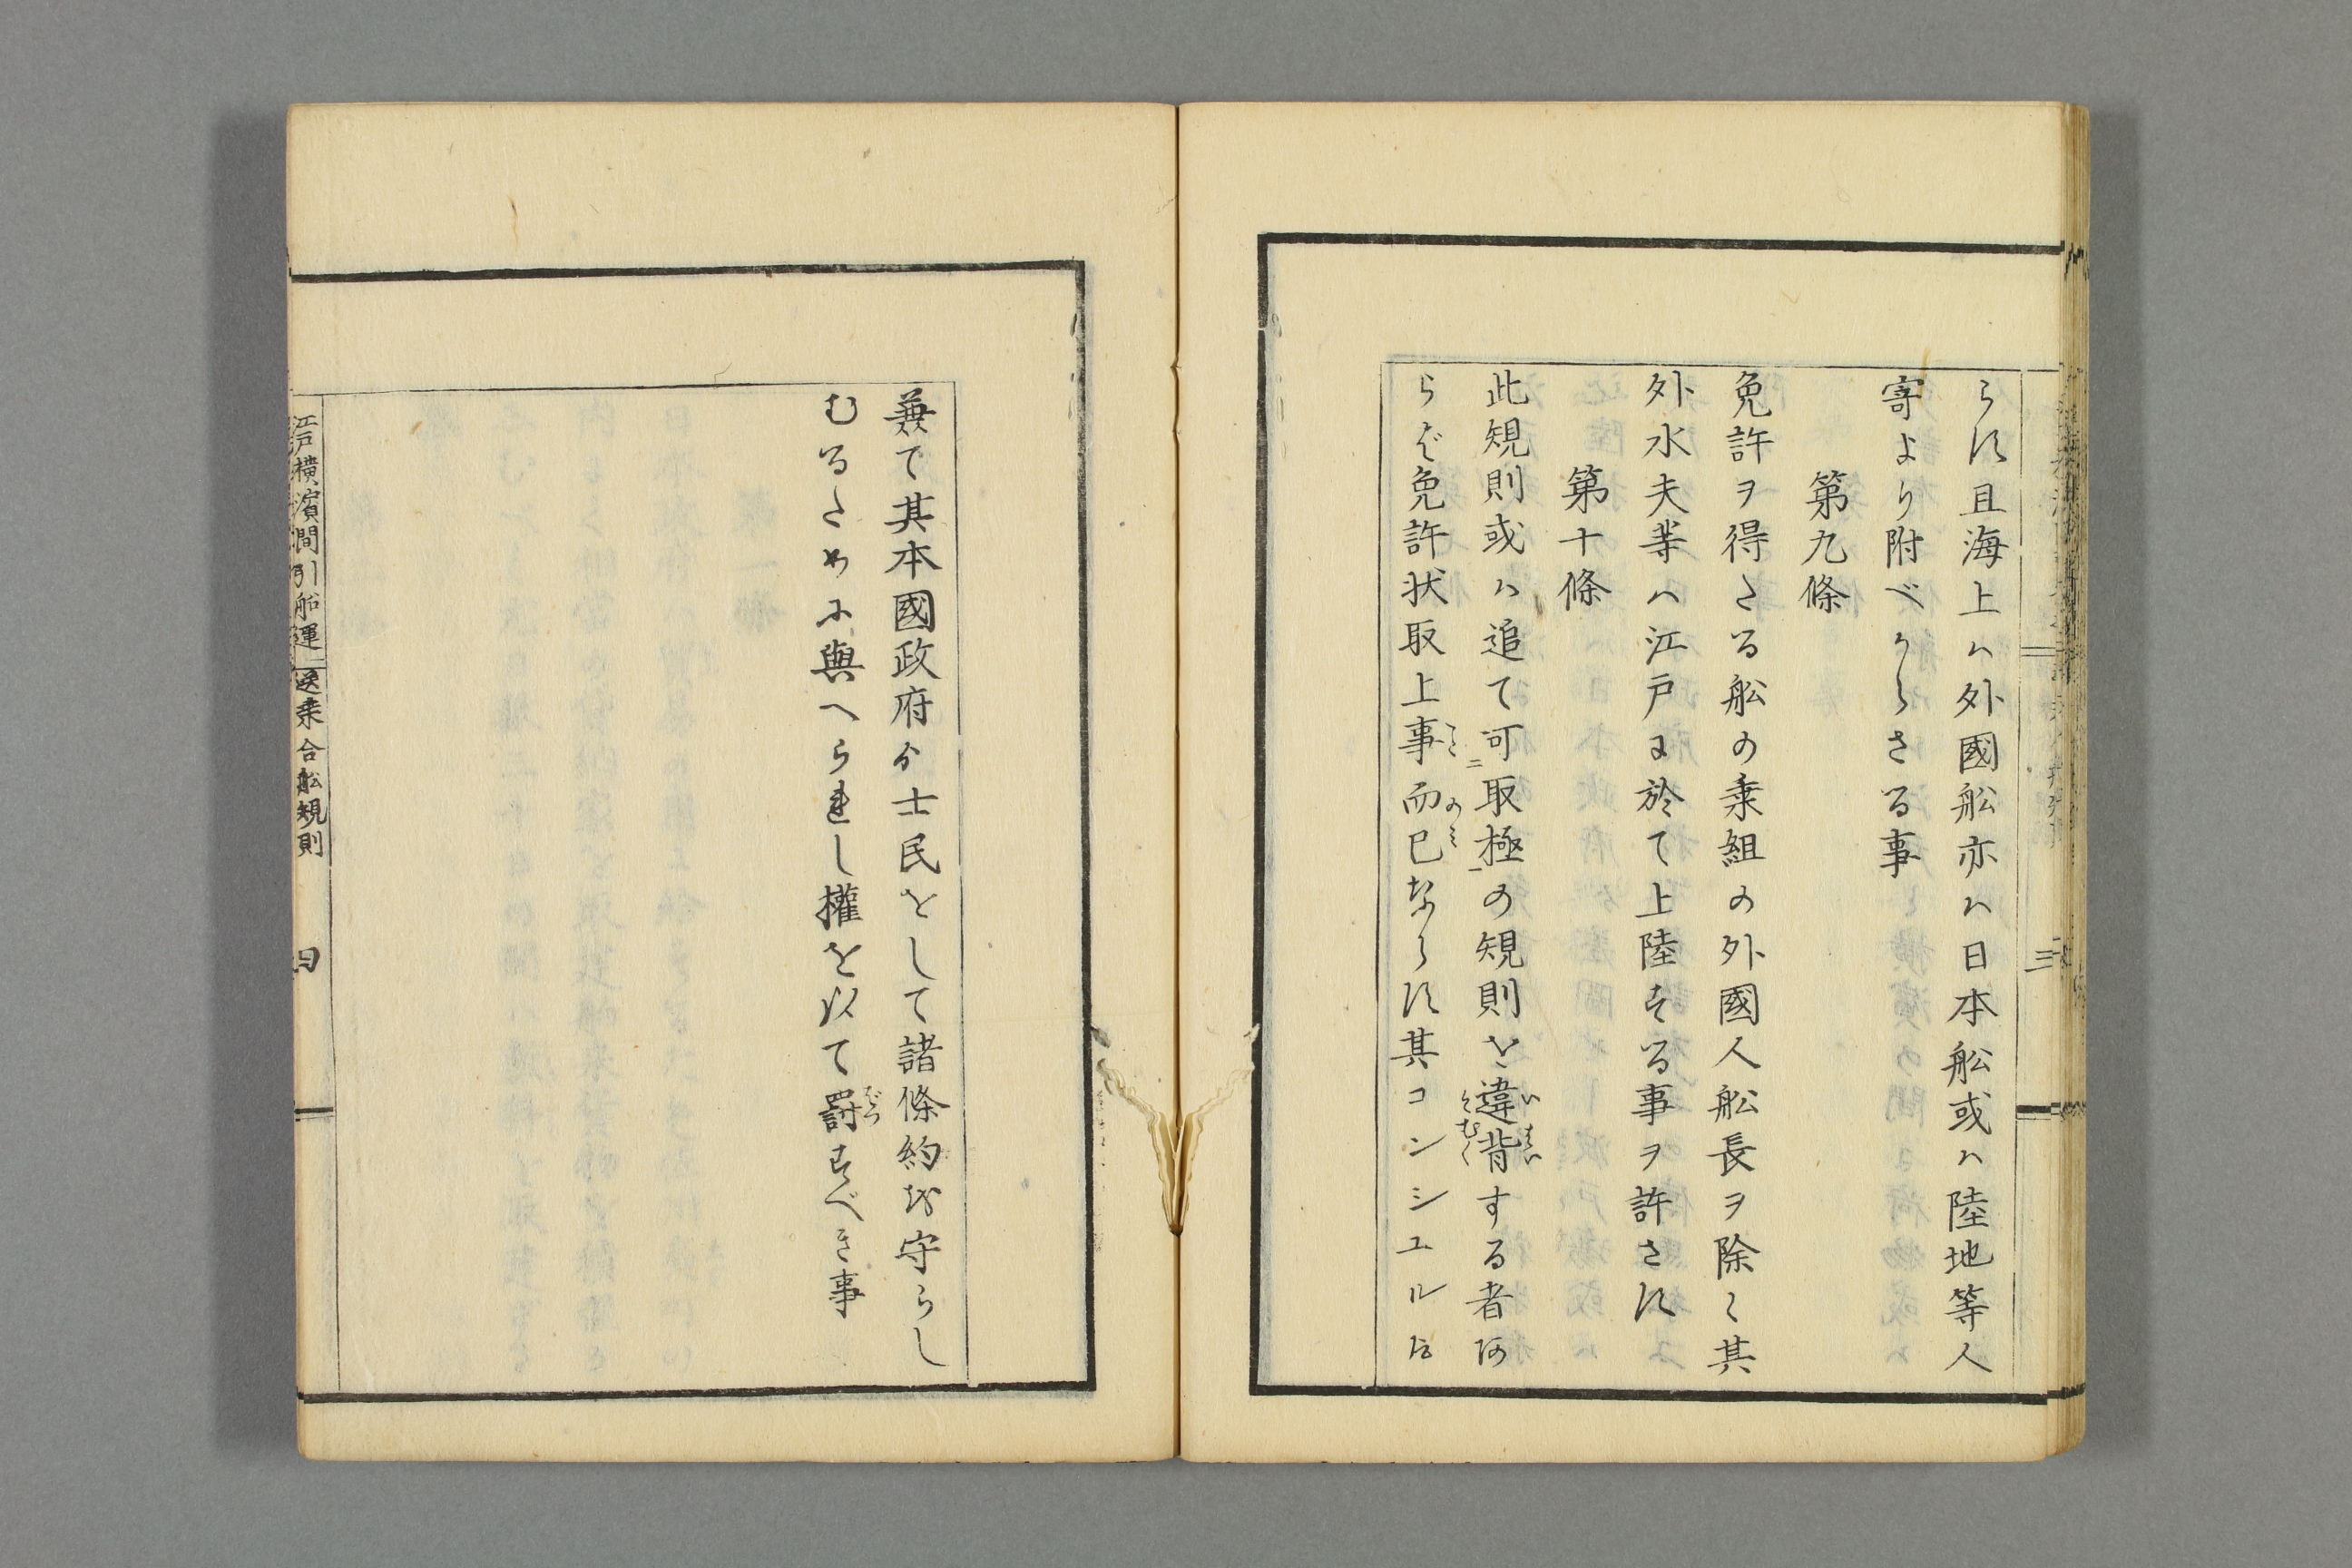 らす且海上ハ外國舩亦ハ日本舩或ハ陸地等人
寄より附べからさる事
第九條
免許ヲ得さる舩の乗組の外國人舩長ヲ除く其
外水夫等ハ江戸に於て上陸する事ヲ許さす
第十條
此規則或ハ追て可二取極一の規則を違背する者あ
いはい
そむく
らば免許状取上事而已ならす其コンシユル方
こと
のみ
兼て其本國政府より士民をして諸條約を守らし
むるために與へられし權を以て罰すべき事
ばつ
江戸横濱間引船運送乗合舩規則
四
三